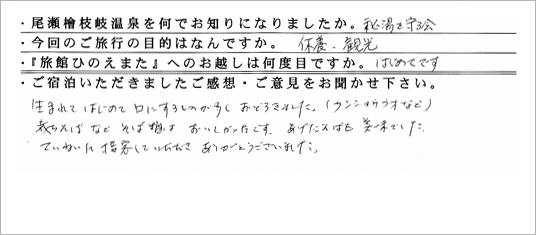 ・尾瀬檜枝岐温泉を何でお知りになりましたか。秘湯を守る会
・今回のご旅行の目的はなんですか。 休養・観光
・『旅館ひのえまた』へのお越しは何度目ですか。はじめてです
・ご宿泊いただきましたご感想・ご意見をお聞かせ下さい。
生まれてはじめて口にするものが多く おどろきました。(サンショウウオなど)
裁ちそば など そば類は おいしかったです。 あげたそばも 美味でした。
ていねいに 指家していただき ありがとうございました。